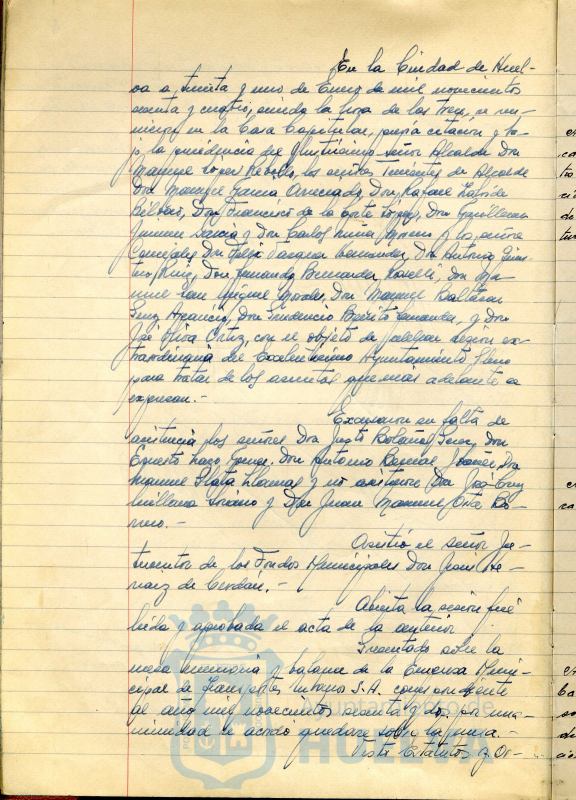 En la Ciudad de Huel-
va a treinta y uno de Enero de mil novecientos
sesenta y cuatro, siendo la hora de las trece, se reu-
nieron en la Casa Capitular, previa citación y ba-
jo la presidencia del Ilustrísimo señor Alcalde Don
Manuel López Rebollo, los señores Tenientes de Alcalde
Don Manuel Garcia Don Rafael
Don Francisco de la Corte López, Don Guillermo
Jimenez Garcia y Don Carlos Moreno y los señores
Concejales Don Felix Hernandez, Don Antonio
Ruiz, Don Fernando Bermudez Don Ma-
nuel San Miguel Don Manuel Baltasar
Aparicio, Don Prudencio Fernandez, y Don
José Oliva Ortiz, con el objeto de celebrar sesión ex-
traordinaria del Excelentísimo Ayuntamiento Pleno
para tratar de los asuntos que más adelante se
expresan.-
Excusaron su falta de
asistencia los señores Don Justo Bolaños Perez, Don
Ernesto Lazo Don Antonio Bernal Don
Manuel Plata Llamas y no asistieron Don José Cruz
Soriano y Don Juan Manuel Orta Ro-
mero.-
Asistió el señor In-
terventor de los Fondos Municipales Don
de Cerdán.-
Abierta la sesión fué
leida y aprobada el acta de la anterior.
Presentado sobre la
mesa memoria y balance de la Empresa Muni-
cipal de Transportes Urbanos S.A. correspondiente
al año mil novecientos sesenta y dos, por una-
nimidad se acordó quedase sobre la mesa.-
Vistos Estatutos y Or-
Ayuntamiento de
HUELVA